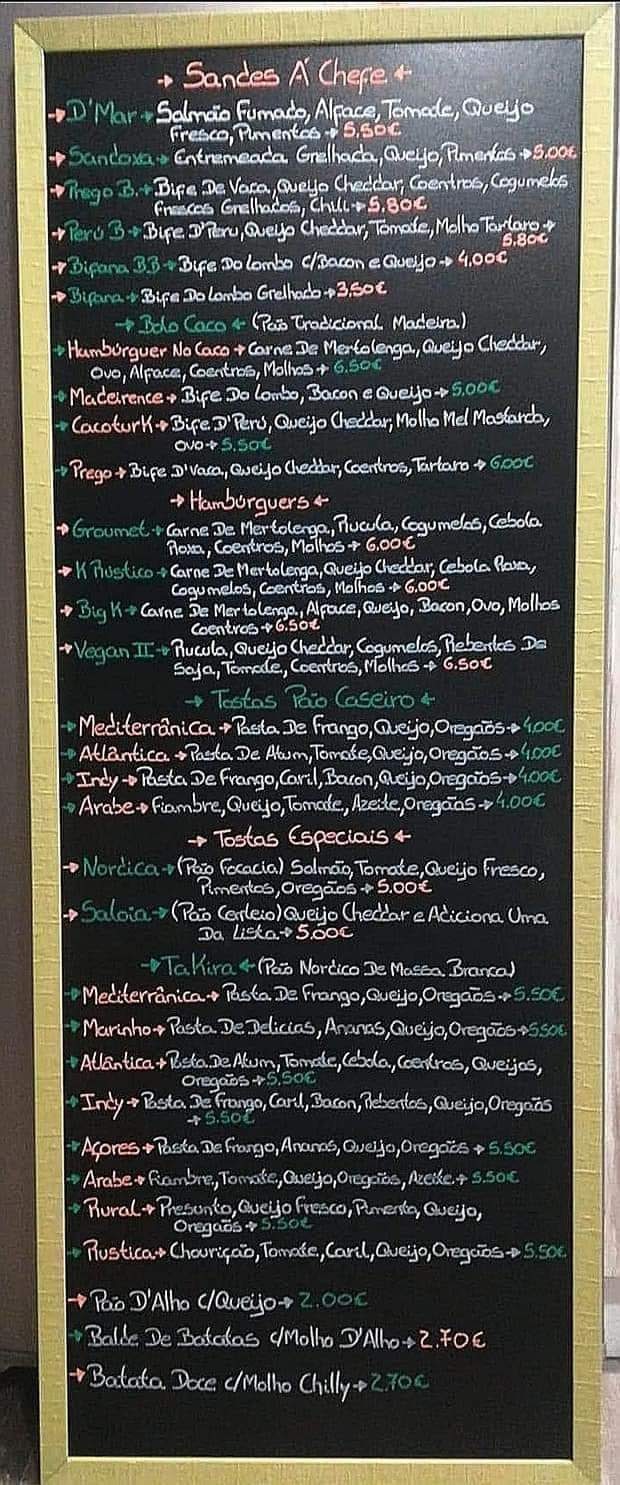 → Sandes Á Chefe ←
→ D'Mar → Salmão Fumado, Alface, Tomate, Queijo
Fresco, Pimentos → 5.50€
→ Sandoxa → Entremeada Grelhada, Queijo, Pimentos → 5.00€
→ Prego B. → Bife De Vaca, Queijo Cheddar, Coentros, Cogumelos
Frescos Grelhados, Chili → 5.80€
→ Perú B → Bife D'Peru, Queijo Cheddar, Tomate, Molho Tartaro →
5.80€
→ Bifana BB → Bife Do Lombo c/Bacon e Queijo → 4.00€
→ Bifana → Bife Do Lombo Grelhado → 3.50€
→ Bolo Caco ← (Pão Tradicional Madeira)
→ Hambúrguer No Caco → Carne De Mertolenga, Queijo Cheddar,
Ovo, Alface, Coentros, Molhos → 6.50€
→ Madeirence → Bife Do Lombo, Bacon e Queijo → 5.00€
→ Cacoturk → Bife D'Perú, Queijo Cheddar, Molho Mel Mostarda,
Ovo → 5.50€
→ Prego → Bife D'Vaca, Queijo Cheddar, Coentros, Tartaro → 6.00€
→ Hambúrguers ←
→ Groumet → Carne De Mertolenga, Rucula, Cogumelos, Cebola
Roxa, Coentros, Molhos → 6.00€
→ K Rústico → Carne De Mertolenga, Queijo Cheddar, Cebola Roxa,
Cogumelos, Coentros, Molhos → 6.00€
→ Big K → Carne De Mertolenga, Alface, Queijo, Bacon, Ovo, Molhos
Coentros → 6.50€
→ Vegan II → Rucula, Queijo Cheddar, Cogumelos, Rebentos De
Soja, Tomate, Coentros, Molhos → 6.50€
→ Tostas Pão Caseiro ←
→ Mediterrânica → Pasta De Frango, Queijo, Oregãos → 4.00€
→ Atlântica → Pasta De Atum, Tomate, Queijo, Oregãos → 4.00€
→ Indy → Pasta De Frango, Caril, Bacon, Queijo, Oregãos → 4.00€
→ Arabe → Fiambre, Queijo, Tomate, Azeite, Oregãos → 4.00€
→ Tostas Especiais ←
→ Nordica → (Pão Focacia) Salmão, Tomate, Queijo Fresco,
Pimentos, Oregãos → 5.00€
→ Saloia → (Pão Centeio) Queijo Cheddar e Adiciona Uma
Da Lista → 5.00€
→ Takira ← (Pão Nordico De Massa Branca)
→ Mediterrânica → Pasta De Frango, Queijo, Oregãos → 5.50€
→ Marinho → Pasta De Delicias, Ananas, Queijo, Oregãos → 5.50€
→ Atlântica → Pasta De Atum, Tomate, Cebola, Coentros, Queijos,
Oregãos → 5.50€
→ Indy → Pasta De Frango, Caril, Bacon, Rebentos, Queijo, Oregãos
→ 5.50€
→ Açores → Pasta De Frango, Ananas, Queijo, Oregãos → 5.50€
→ Arabe → Fiambre, Tomate, Queijo, Oregãos, Azeite → 5.50€
→ Rural → Presunto, Queijo Fresco, Pimento, Queijo,
Oregãos → 5.50€
→ Rustica → Chourição, Tomate, Caril, Queijo, Oregãos → 5.50€
→ Pão D'Alho c/Queijo → 2.00€
→ Balde De Batatas c/Molho D'Alho → 2.70€
→ Batata Doce c/Molho Chilly → 2.70€